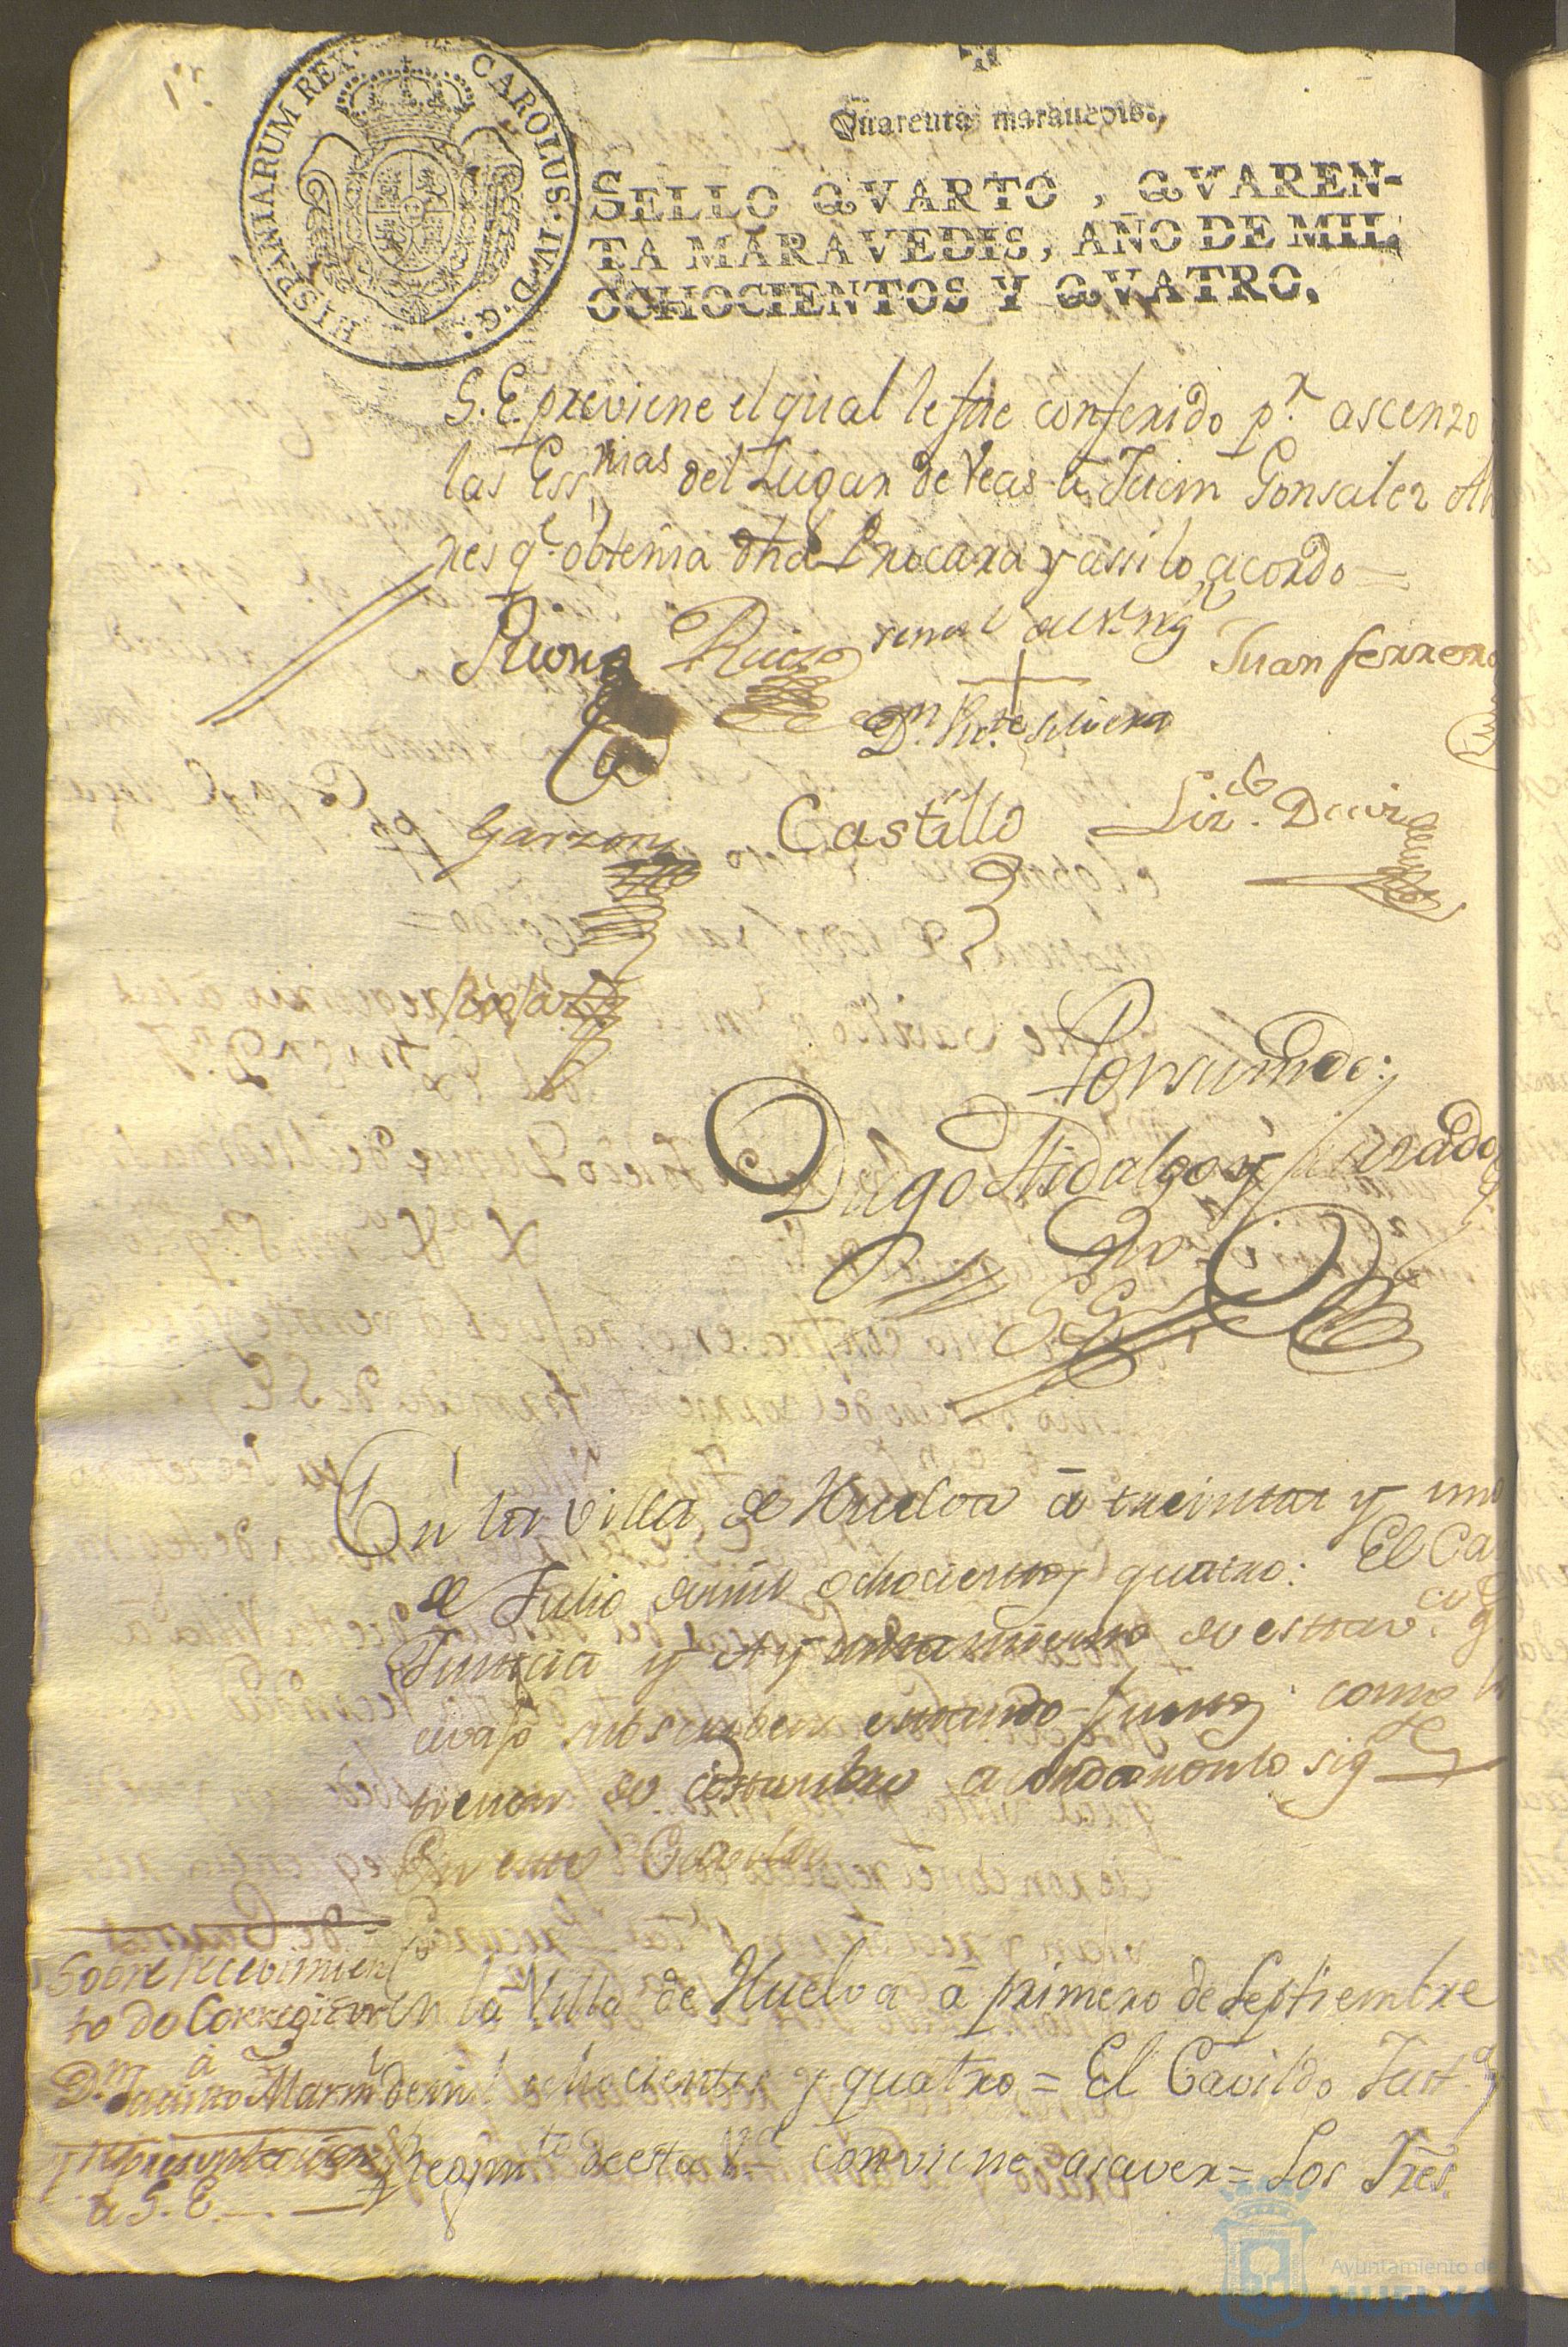 HISPANIARUM REX CAROLUS · IV · D · G ·
Quarenta maravedis.
SELLO QVARTO, QVAREN-
TA MARAVEDIS, AÑO DE MIL
OCHOCIENTOS Y QVATRO.
S. E. previene el qual le fue conferido p.r ascenzo
las Ess.nias del Lugar de Veas a Juan Gonsalez
res q.e obtenia dha Procura y assi lo acordo =
Ruiz
Juan ferrero
D.n Rivera
Garzon Castillo Liz.do
Por su mdo:
Diego Hidalgo y Jurado
En la Villa de Huelva â treinta y uno
de Julio de mil ochocientos y quatro: El Ca
Justicia y Ayuntamiento de esta V.
avajo subscriben estando juntos como lo
tienen de costumbre acordaron lo sig.te
En este Cavildo
Sobre recevimien
to de Corregidor
a
D.n Jacinto Marin
y representacion
a S. E.
En la Villa de Huelva â primero de Septiembre
de mil ochocientos y quatro = El Cavildo Just.a
y Regim.to de esta V.a conviene a saver = Los Sres.
Ayuntamiento de
HUELVA